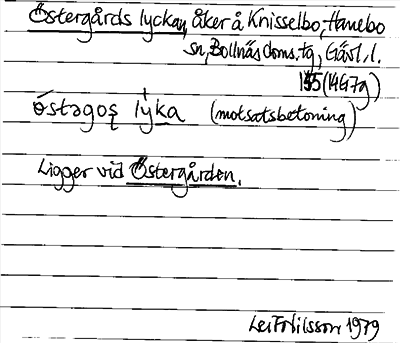 Östergårds lyckan, åker å Knisselbo, Hanebo
sn, Bollnäs doms.tg, Gävl. l.
155 (14G7g)
östəgoș lyka (motsatsbetoning)
Ligger vid Östergården.
Leif Nilsson 1979